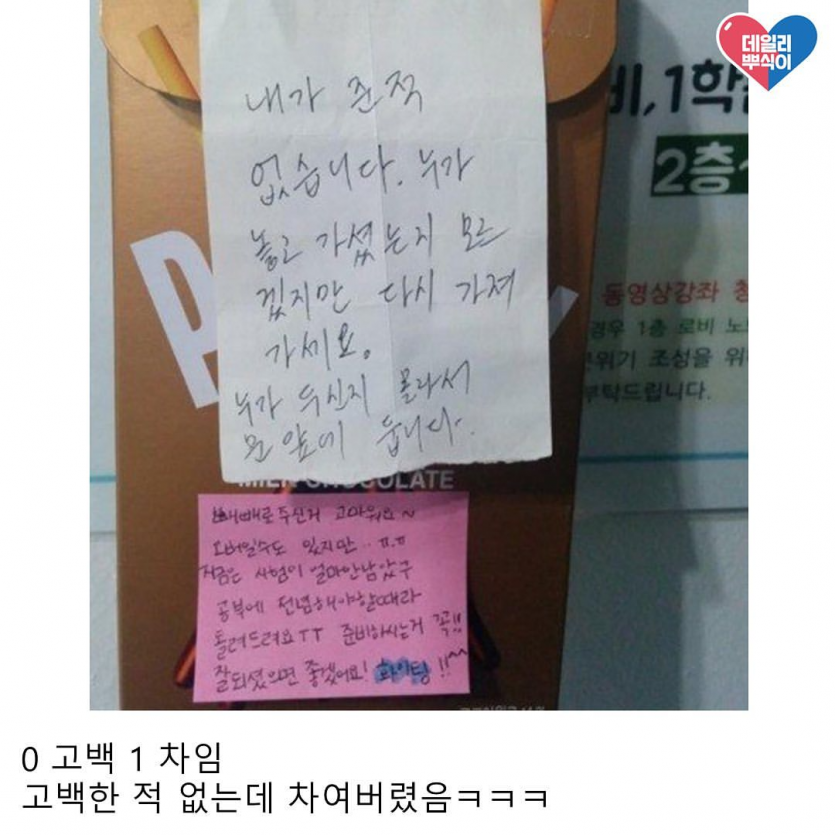 데일리
뿌식이
내가 준적
없습니다. 누가
놓고 가셨는지 모르
겠지만 다시 가져
가세요.
누가 두신지 몰라서
문앞에 둡니다.
비,1학
2층
동영상강좌
경우 1층 로비
위기 조성을 위
부탁드립니다.
MILK CHOCOLATE
빼빼로 주신거 고마워요~
오버일수도 있지만.. ㅠ.ㅠ
지금은 시험이 얼마안남았구
공부에 전념해야할때라
돌려드려요TT 준비하시는거 꼭!!
잘되셨으면 좋겠어요! 화이팅!!^^
0 고백 1 차임
고백한 적 없는데 차여버렸음ㅋㅋㅋ